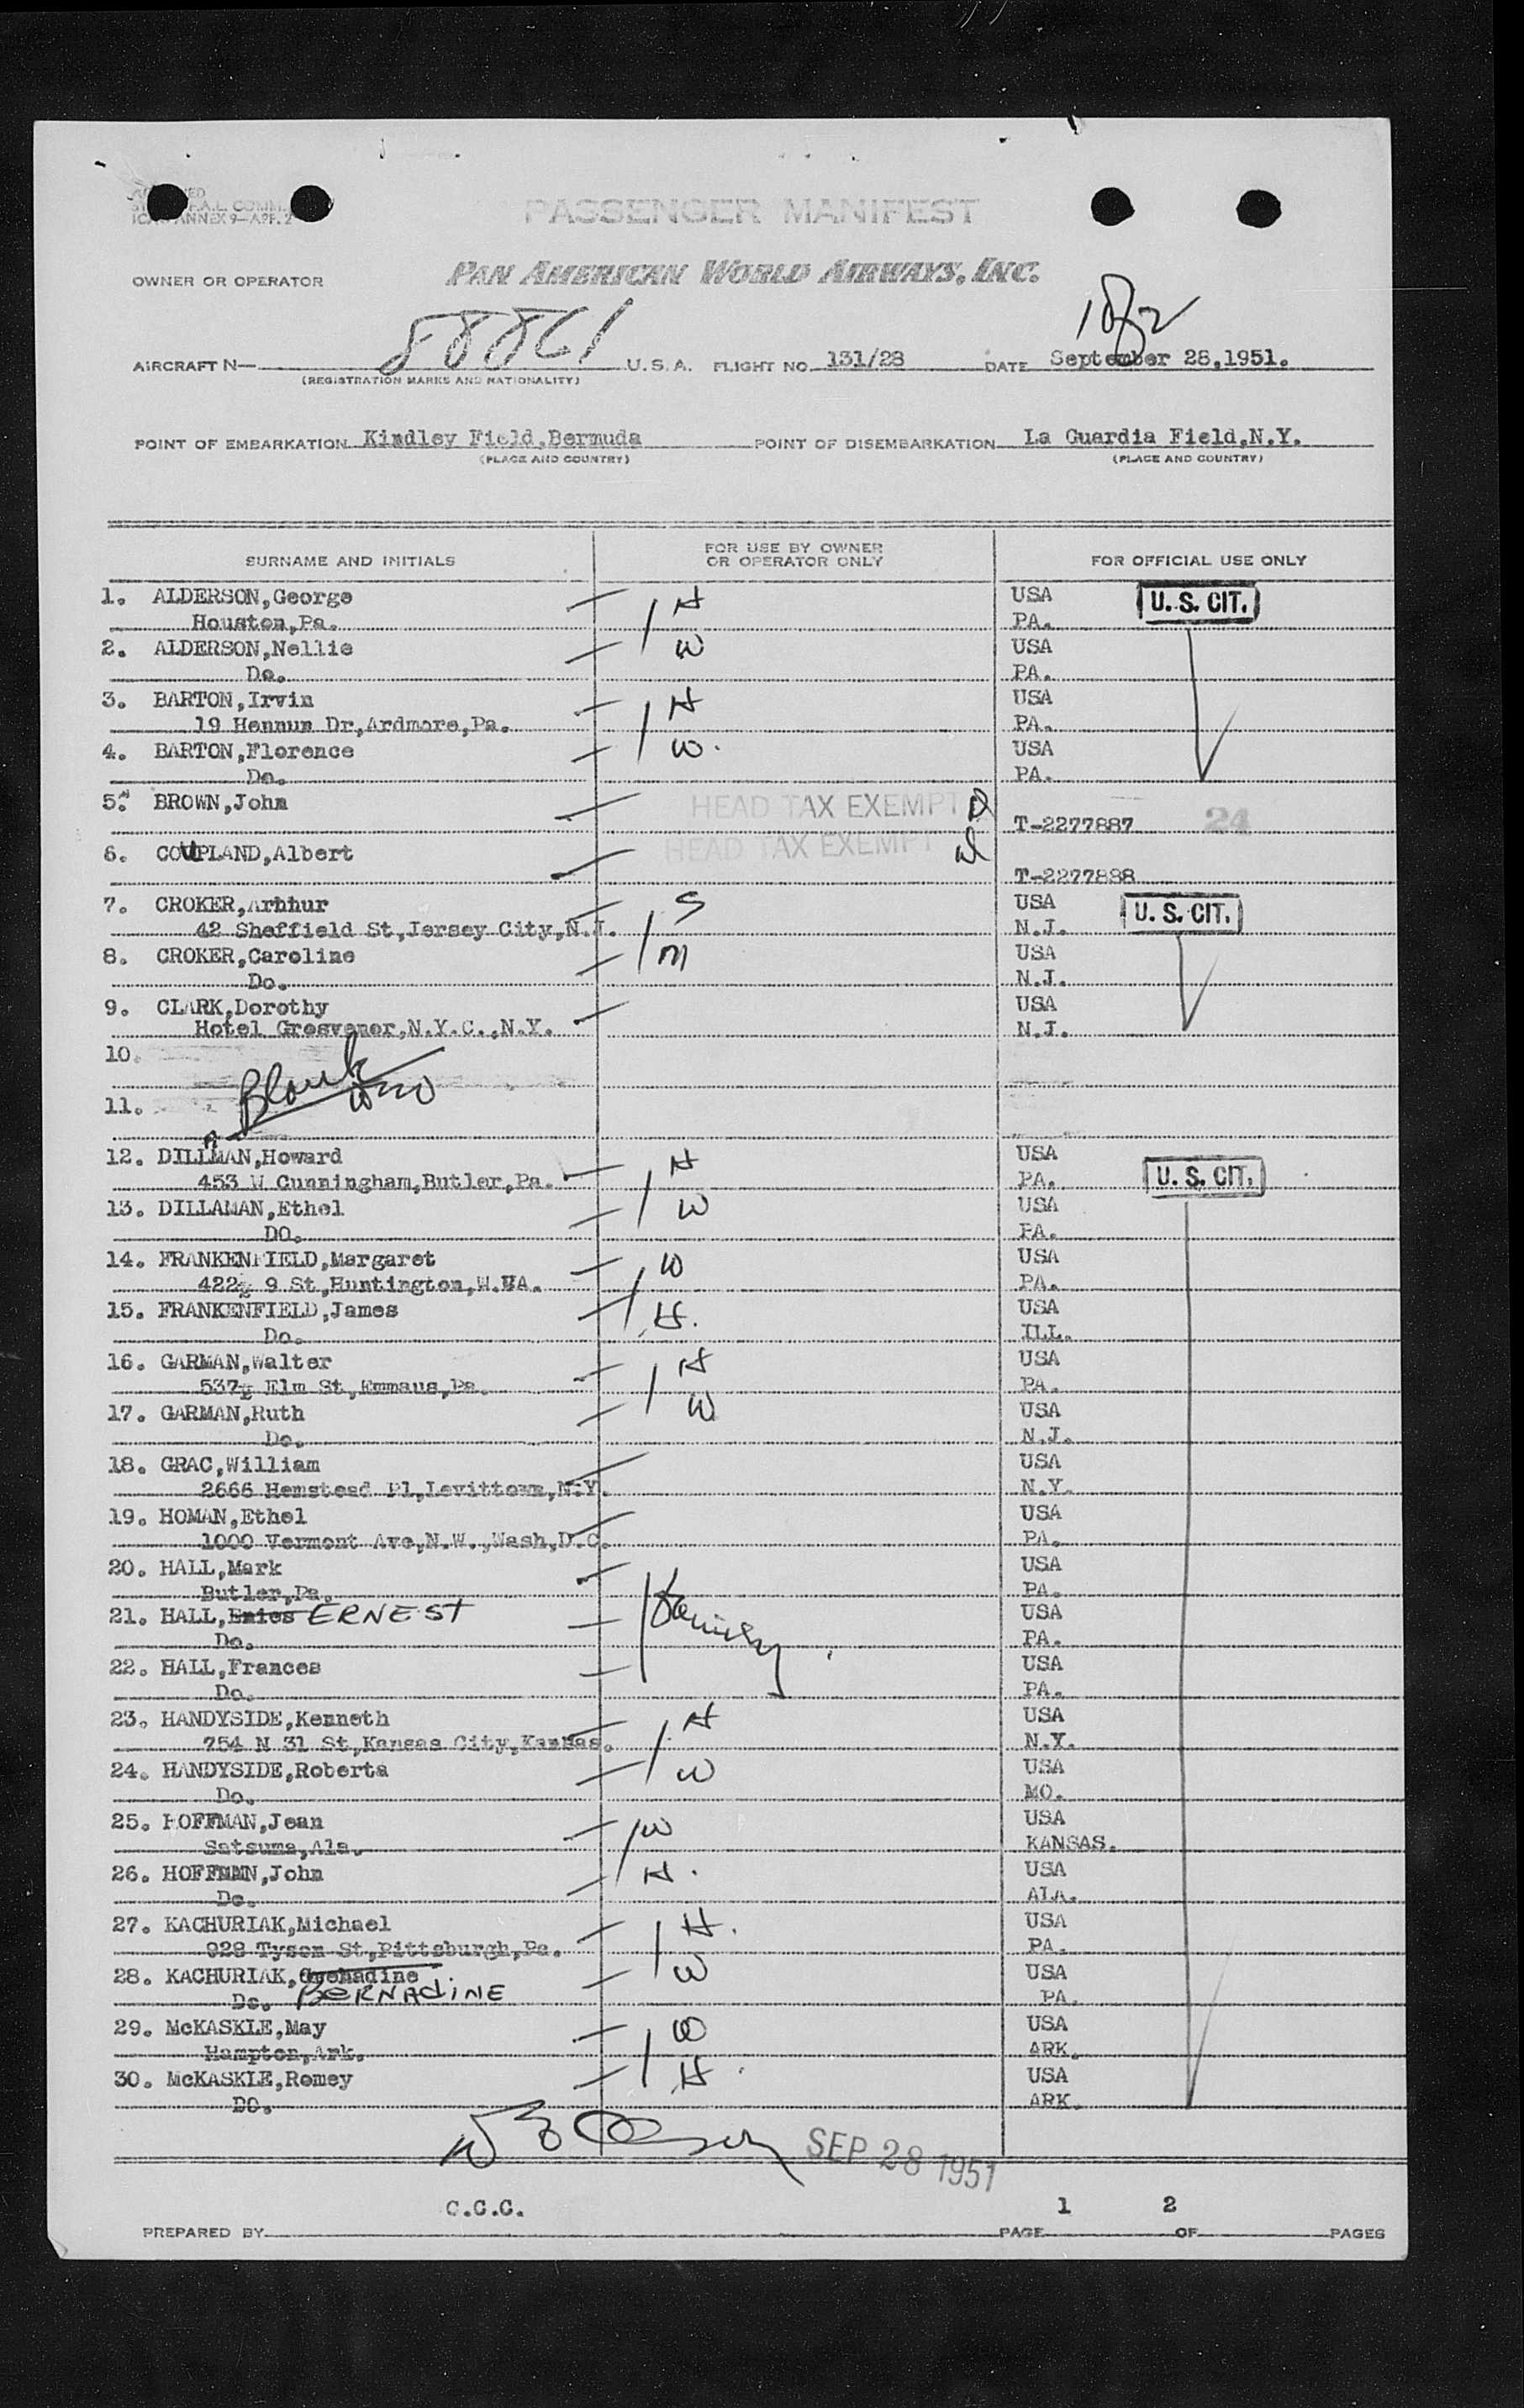 PASSENGER MANIFEST
ICAO ANNEX 9—APP. 2
OWNER OR OPERATOR PAN AMERICAN WORLD AIRWAYS, INC.
1082
AIRCRAFT N— 88861 U.S.A. FLIGHT NO. 131/28 DATE September 28,1951.
(REGISTRATION MARKS AND NATIONALITY)
POINT OF EMBARKATION Kindley Field,Bermuda POINT OF DISEMBARKATION La Guardia Field,N.Y.
(PLACE AND COUNTRY) (PLACE AND COUNTRY)
SURNAME AND INITIALS FOR USE BY OWNER OR OPERATOR ONLY FOR OFFICIAL USE ONLY
1. ALDERSON,George H USA U. S. CIT.
Houston,Pa. PA.
2. ALDERSON,Nellie W USA
Do. PA.
3. BARTON,Irvin H USA
19 Hennum Dr,Ardmore,Pa. PA.
4. BARTON,Florence W. USA
Do. PA.
5. BROWN,John HEAD TAX EXEMPT
T-2277887 24
6. COUPLAND,Albert HEAD TAX EXEMPT
T-2277888
7. CROKER,Arhhur S USA U. S. CIT.
42 Sheffield St,Jersey City,N.J. N.J.
8. CROKER,Caroline M USA
Do. N.J.
9. CLARK,Dorothy USA
Hotel Grosvenor,N.Y.C.,N.Y. N.J.
10.
Blank
11.
12. DILLMAN,Howard H USA
A
453 W Cunningham,Butler,Pa. PA. U. S. CIT.
13. DILLAMAN,Ethel W USA
DO. PA.
14. FRANKENFIELD,Margaret W USA
422½ 9 St,Huntington,W.VA. PA.
15. FRANKENFIELD,James H. USA
Do. ILL.
16. GARMAN,Walter H USA
537½ Elm St,Emmaus,Pa. PA.
17. GARMAN,Ruth W USA
Do. N.J.
18. GRAC,William USA
2666 Hemstead Pl,Levittown,N.Y. N.Y.
19. HOMAN,Ethel USA
1000 Vermont Ave,N.W.,Wash,D.C. PA.
20. HALL,Mark USA
Butler,Pa. PA.
21. HALL,Ernies ERNEST Family USA
Do. PA.
22. HALL,Frances USA
Do. PA.
23. HANDYSIDE,Kenneth H USA
754 N 31 St,Kansas City,Kansas. N.Y.
24. HANDYSIDE,Roberta W USA
Do. MO.
25. HOFFMAN,Jean W USA
Satsuma,Ala. KANSAS.
26. HOFFMAN,John H. USA
Do. ALA.
27. KACHURIAK,Michael H. USA
928 Tyson St,Pittsburgh,Pa. PA.
28. KACHURIAK, W USA
Do. BERNADINE PA.
29. McKASKLE,May W USA
Hampton,Ark. ARK.
30. McKASKLE,Romey H. USA
DO. ARK.
SEP 28 1951
C.C.C. 1 2
PREPARED BY PAGE OF PAGES